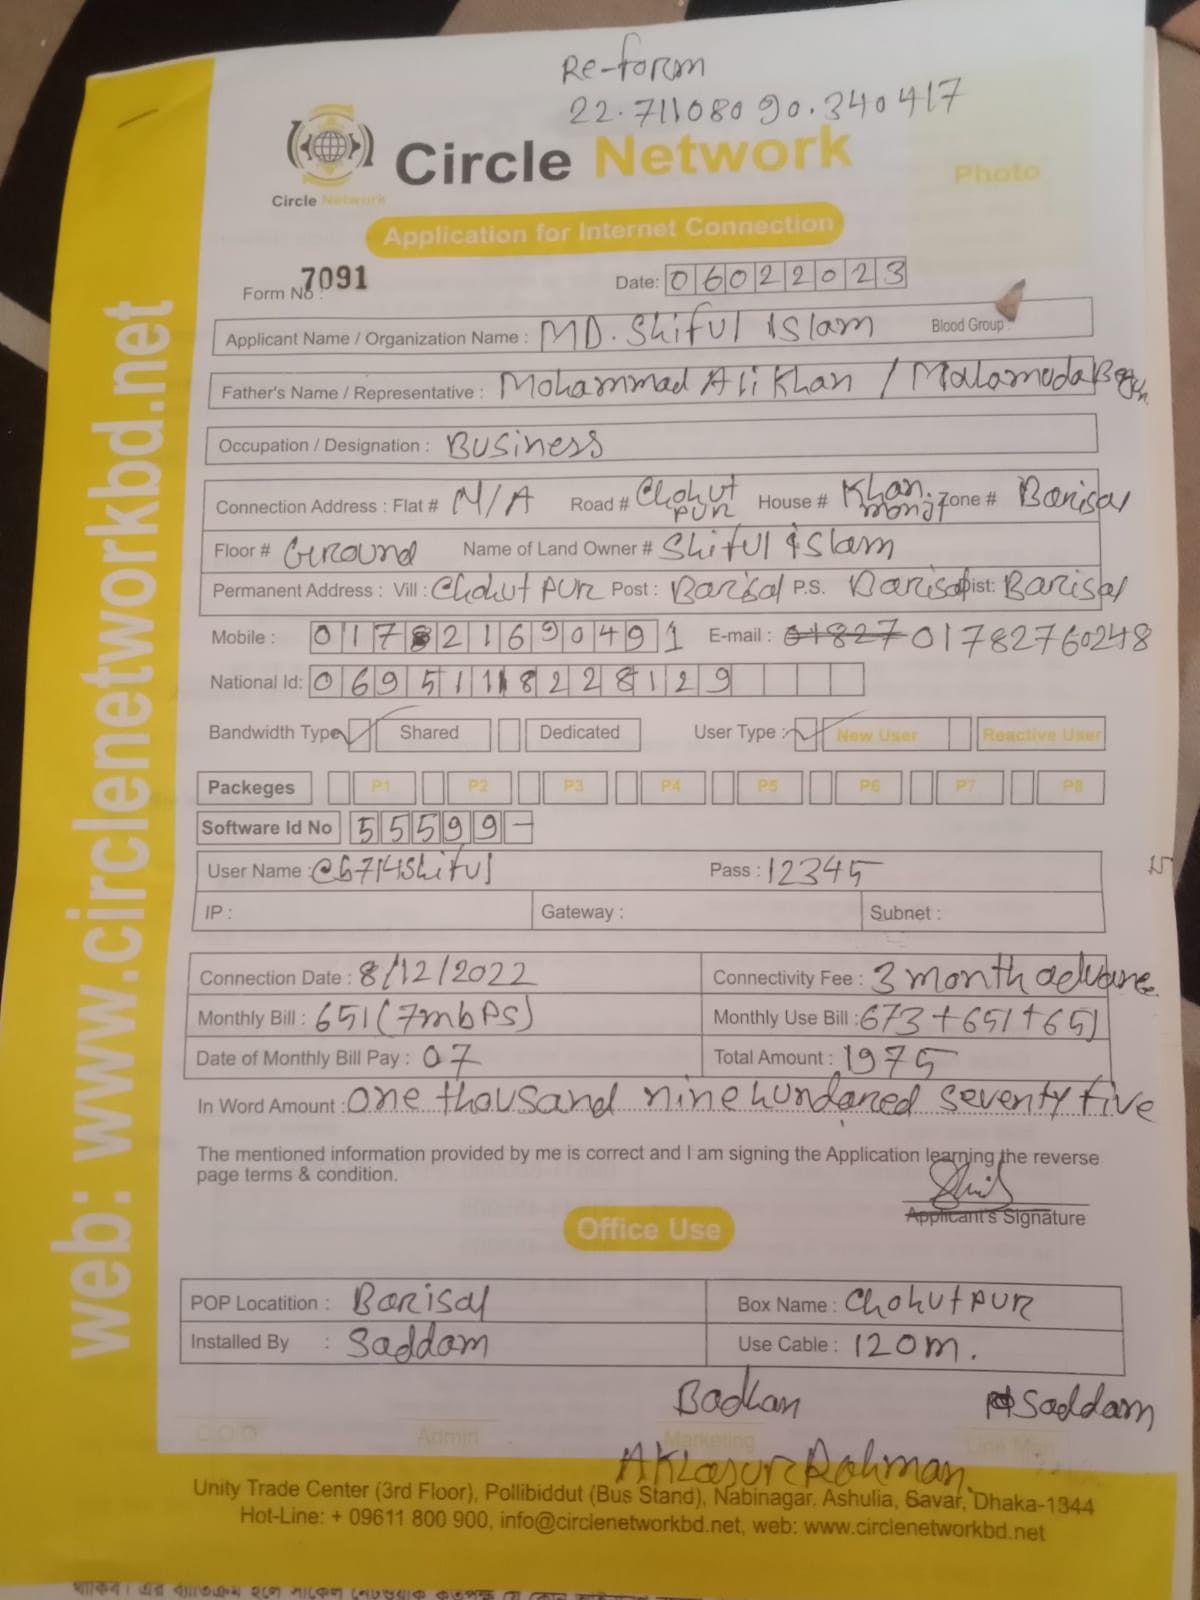 Re-form
22.711080 90.340417
Circle Network
Circle Network
Photo
Application for Internet Connection
Form No : 7091
Date: 06022023
Applicant Name / Organization Name : MD. Shiful Islam Blood Group :
Father's Name / Representative : Mohammad Ali Khan /
Occupation / Designation : Business
Connection Address : Flat # N/A Road # Chohutpur House # Khan Zone # Barisal
Floor # Ground Name of Land Owner # Shiful Islam
Permanent Address : Vill : Chohutpur Post : Barisal P.S. Barisal Dist: Barisal
Mobile : 01782169049 1 E-mail : 01782760248
National Id: 
Bandwidth Type Shared Dedicated User Type : New User Reactive User
Packeges P1 P2 P3 P4 P5 P6 P7 P8
Software Id No 55599-
User Name : Pass : 12345
IP : Gateway : Subnet :
Connection Date : 8/12/2022 Connectivity Fee : 3 month advance
Monthly Bill : 651 (7mbps) Monthly Use Bill : 673+651+651
Date of Monthly Bill Pay : 07 Total Amount : 1975
In Word Amount : one thousand nine hundared seventy five
The mentioned information provided by me is correct and I am signing the Application learning the reverse
page terms & condition.
Applicant's Signature
Office Use
POP Locatition : Barisal Box Name : Chohutpur
Installed By : Saddam Use Cable : 120m.
Badhan Saddam
C.O.O Admin Marketing Line Man
Rahman
Unity Trade Center (3rd Floor), Pollibiddut (Bus Stand), Nabinagar, Ashulia, Savar, Dhaka-1344
Hot-Line: + 09611 800 900, info@circlenetworkbd.net, web: www.circlenetworkbd.net
web: www.circlenetworkbd.net